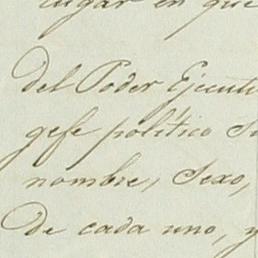 lugar en que
del Poder Ejecuti
gefe político su
nombre, Sexo,
de cada uno, y